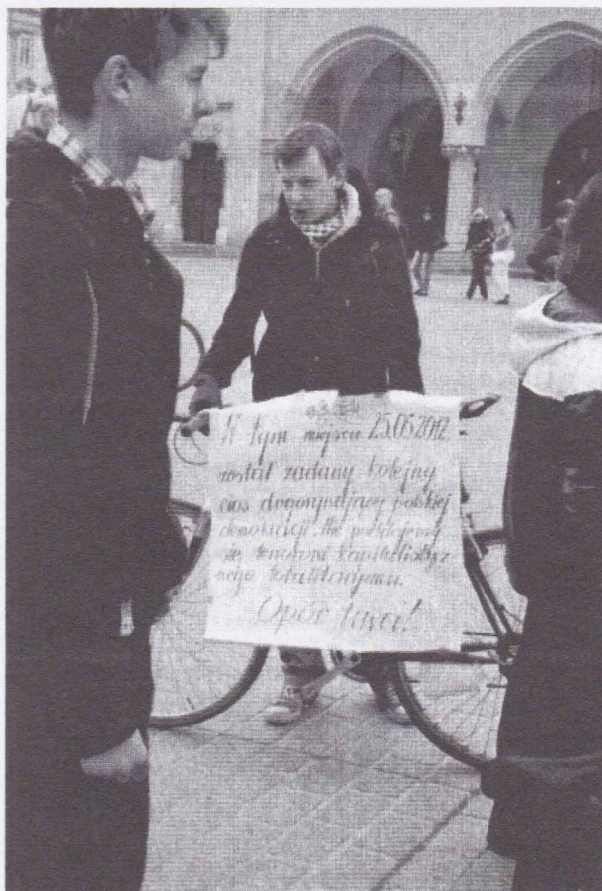 W tym miejscu 25.05.2012
został zadany kolejny
cios dogorywającej polskiej
demokracji. Nie poddajemy
się terrorowi kapitalistycz
nego totalitaryzmu.
Opór trwa!